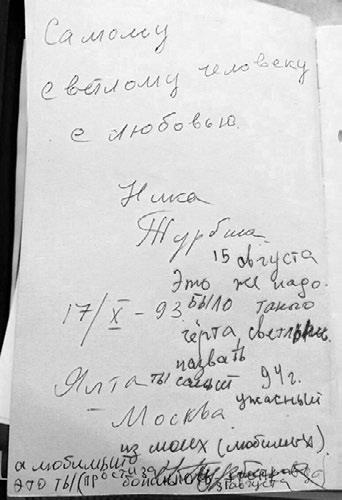 Самому
светлому человеку
с любовью.
Ника
Турбина.
15 августа
Это же надо
17/X - 93 было такого
чёрта, светлым
назвать
Ялта ты самый 94 г.
- Москва ужасный
из моих (любимых)
а любимый
это ты (прости за
банальность
августа